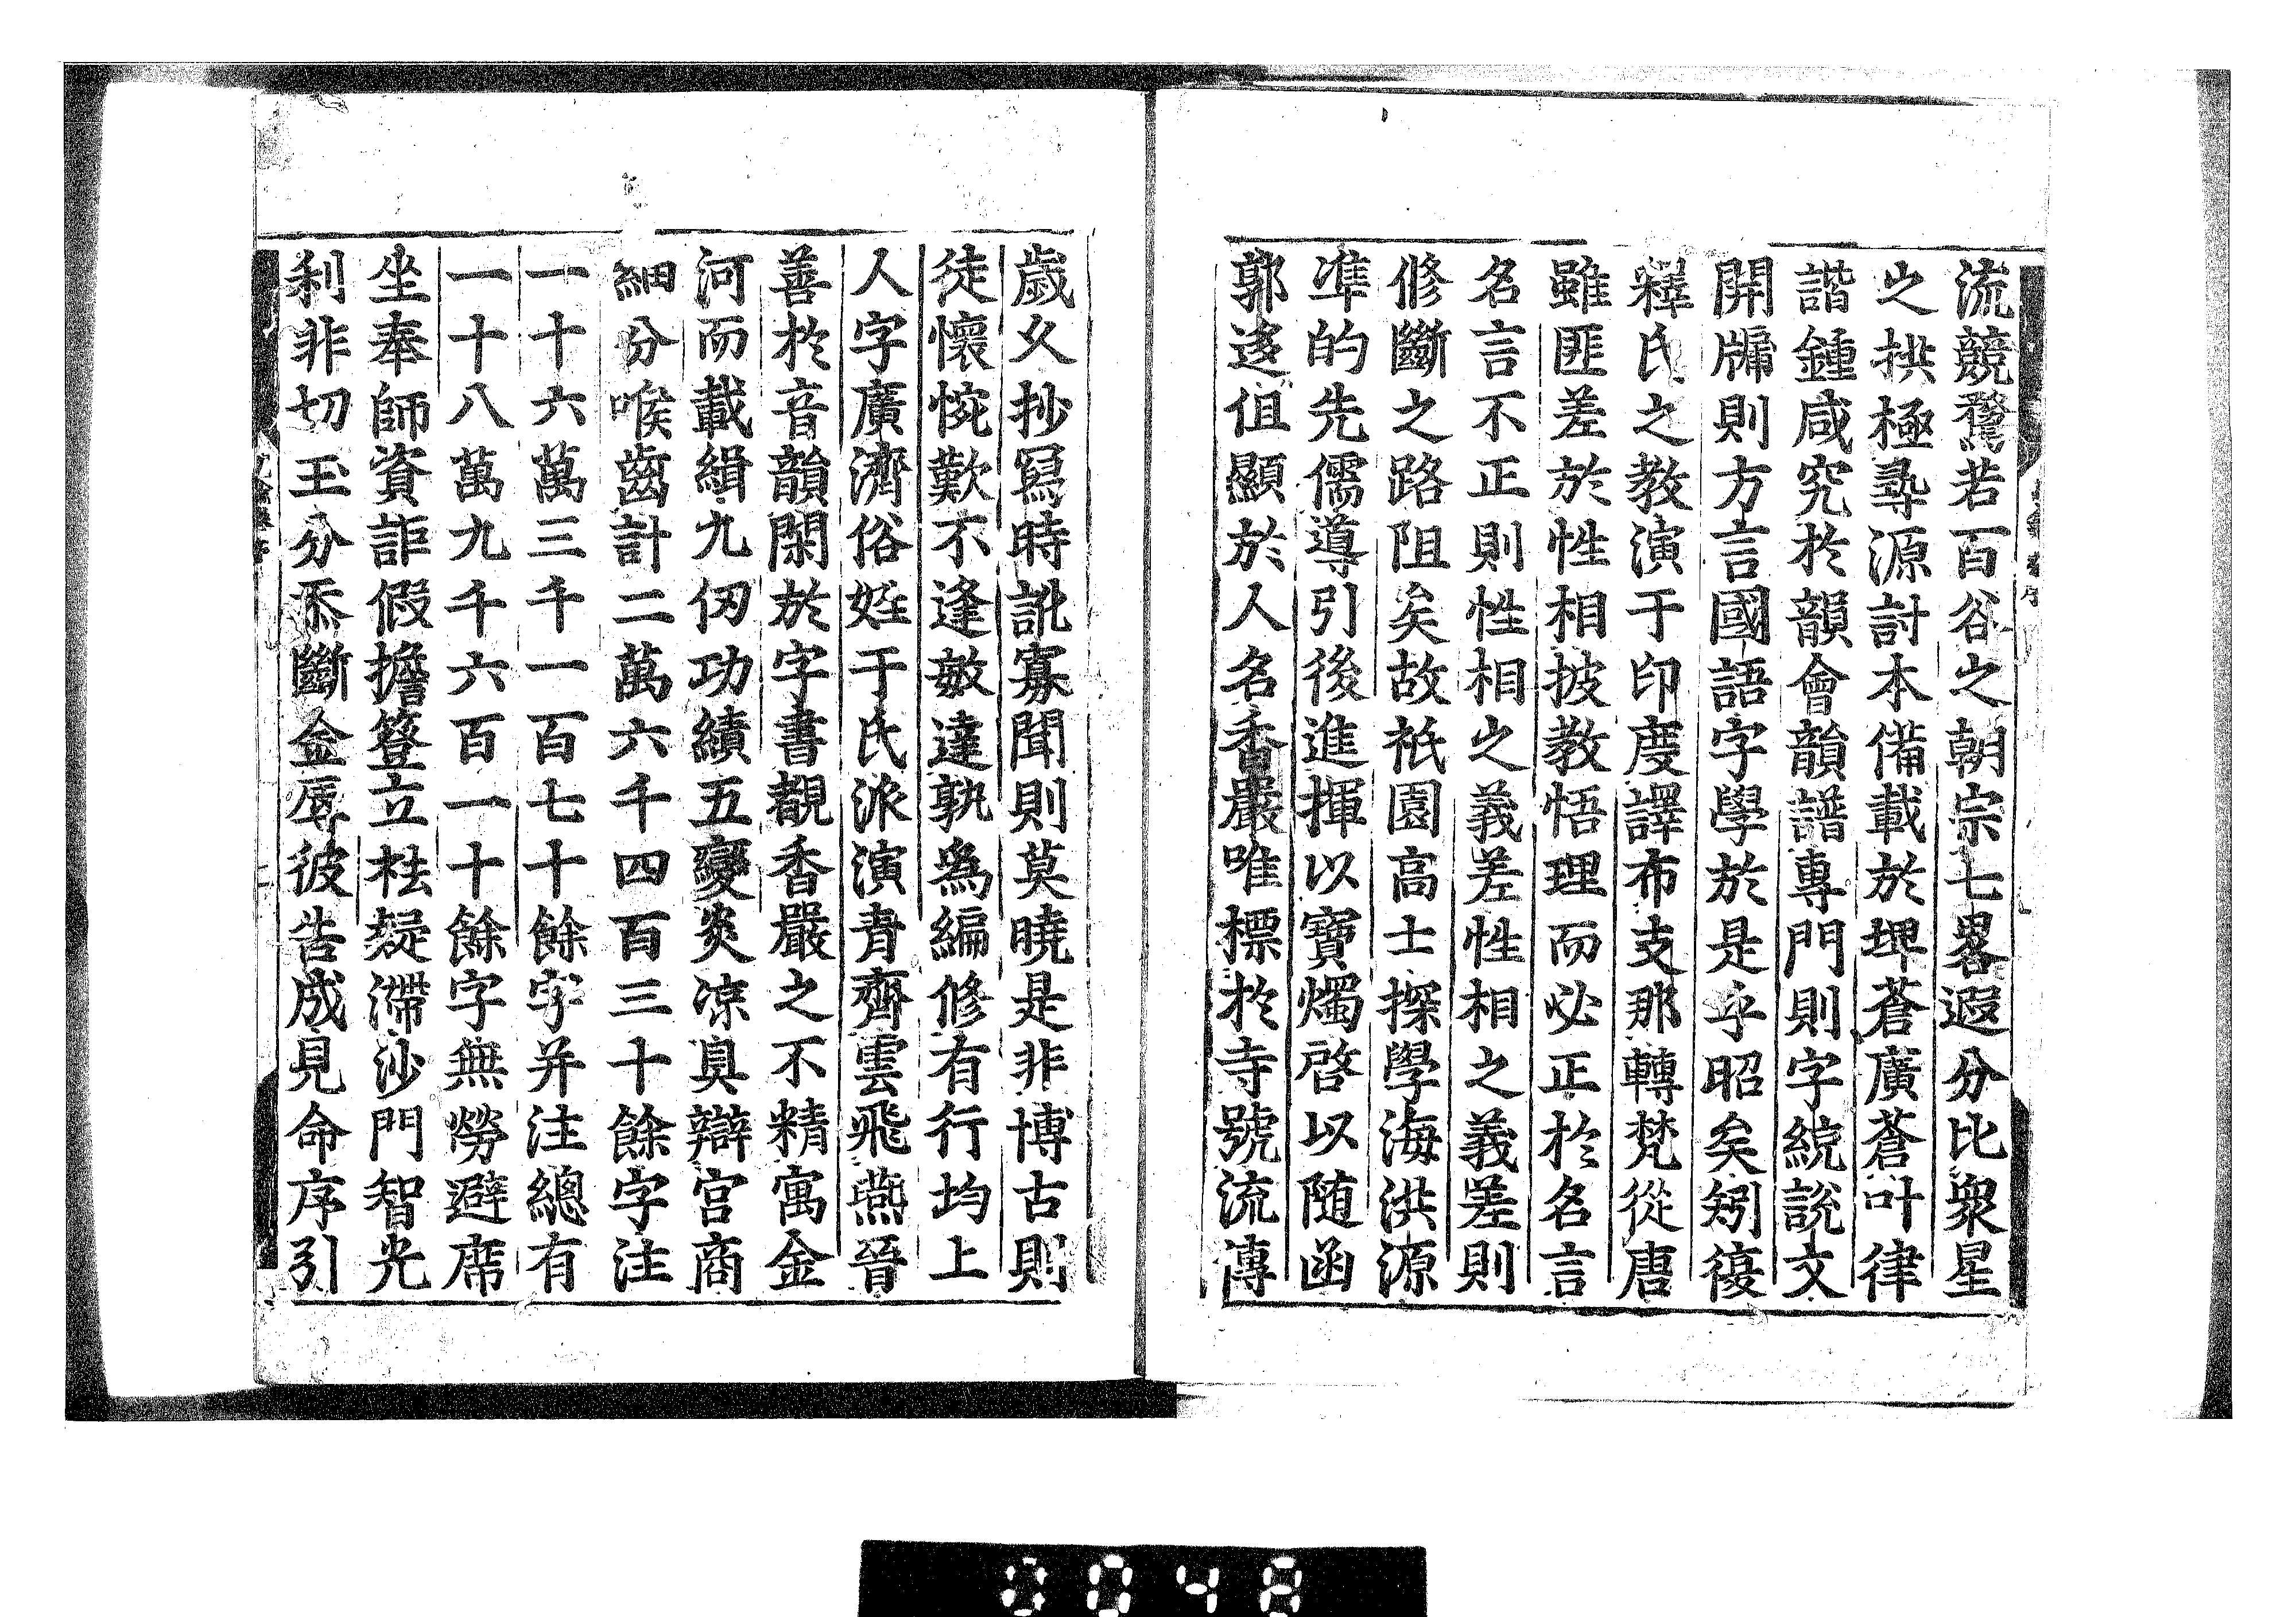 流競騖若百谷之朝宗七畧遐分比衆星
之拱極尋源討本備載於埤蒼廣蒼叶律
諧鍾咸究於韻會韻譜專門則字統說文
開牖則方言國語字學於是乎昭矣矧復
釋氏之教演于印度譯布支那轉梵從唐
雖匪差於性相披教悟理而必正於名言
名言不正則性相之義差性相之義差則
修斷之路阻矣故祇園高士探學海洪源
準的先儒導引後進揮以寶燭啓以随函
郭迻但顯於人名香嚴唯標於寺號流傳
歲久抄寫時訛寡聞則莫曉是非博古則
徒懷惋歎不逢敏達孰爲編修有行均上
人字廣濟俗姓于氏派演青齊雲飛燕晉
善於音韻閑於字書覩香嚴之不精寓金
河而載緝九仞功績五變炎凉具辯宮商
細分喉齒計二萬六千四百三十餘字注
一十六萬三千一百七十餘字并注總有
一十八萬九千六百一十餘字無勞避席
坐奉師資詎假擔簦立袪疑滯沙門智光
利非切玉分忝斷金辱彼告成見命序引
0048